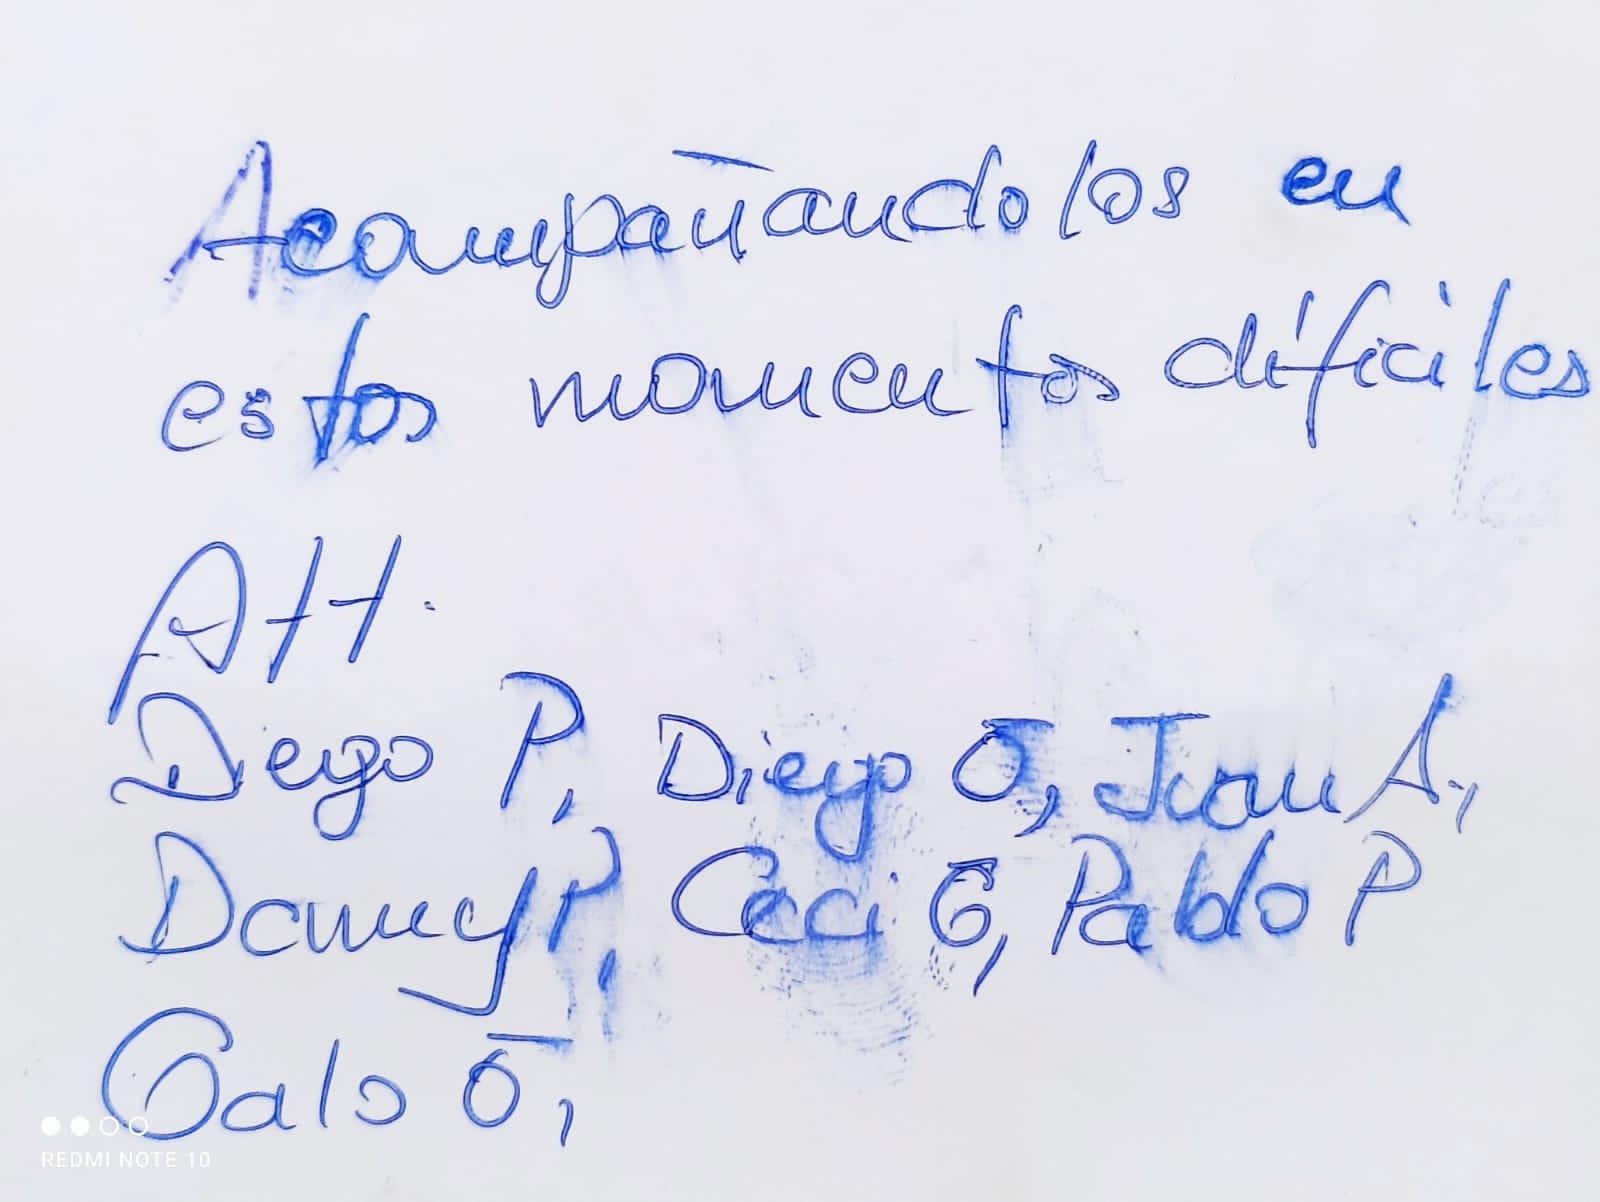 Acompañandolos en
estos momentos difíciles
Att.
Diego P, Diego O, Juan A.,
Danny P, Ceci G, Pablo P
Galo O,
REDMI NOTE 10